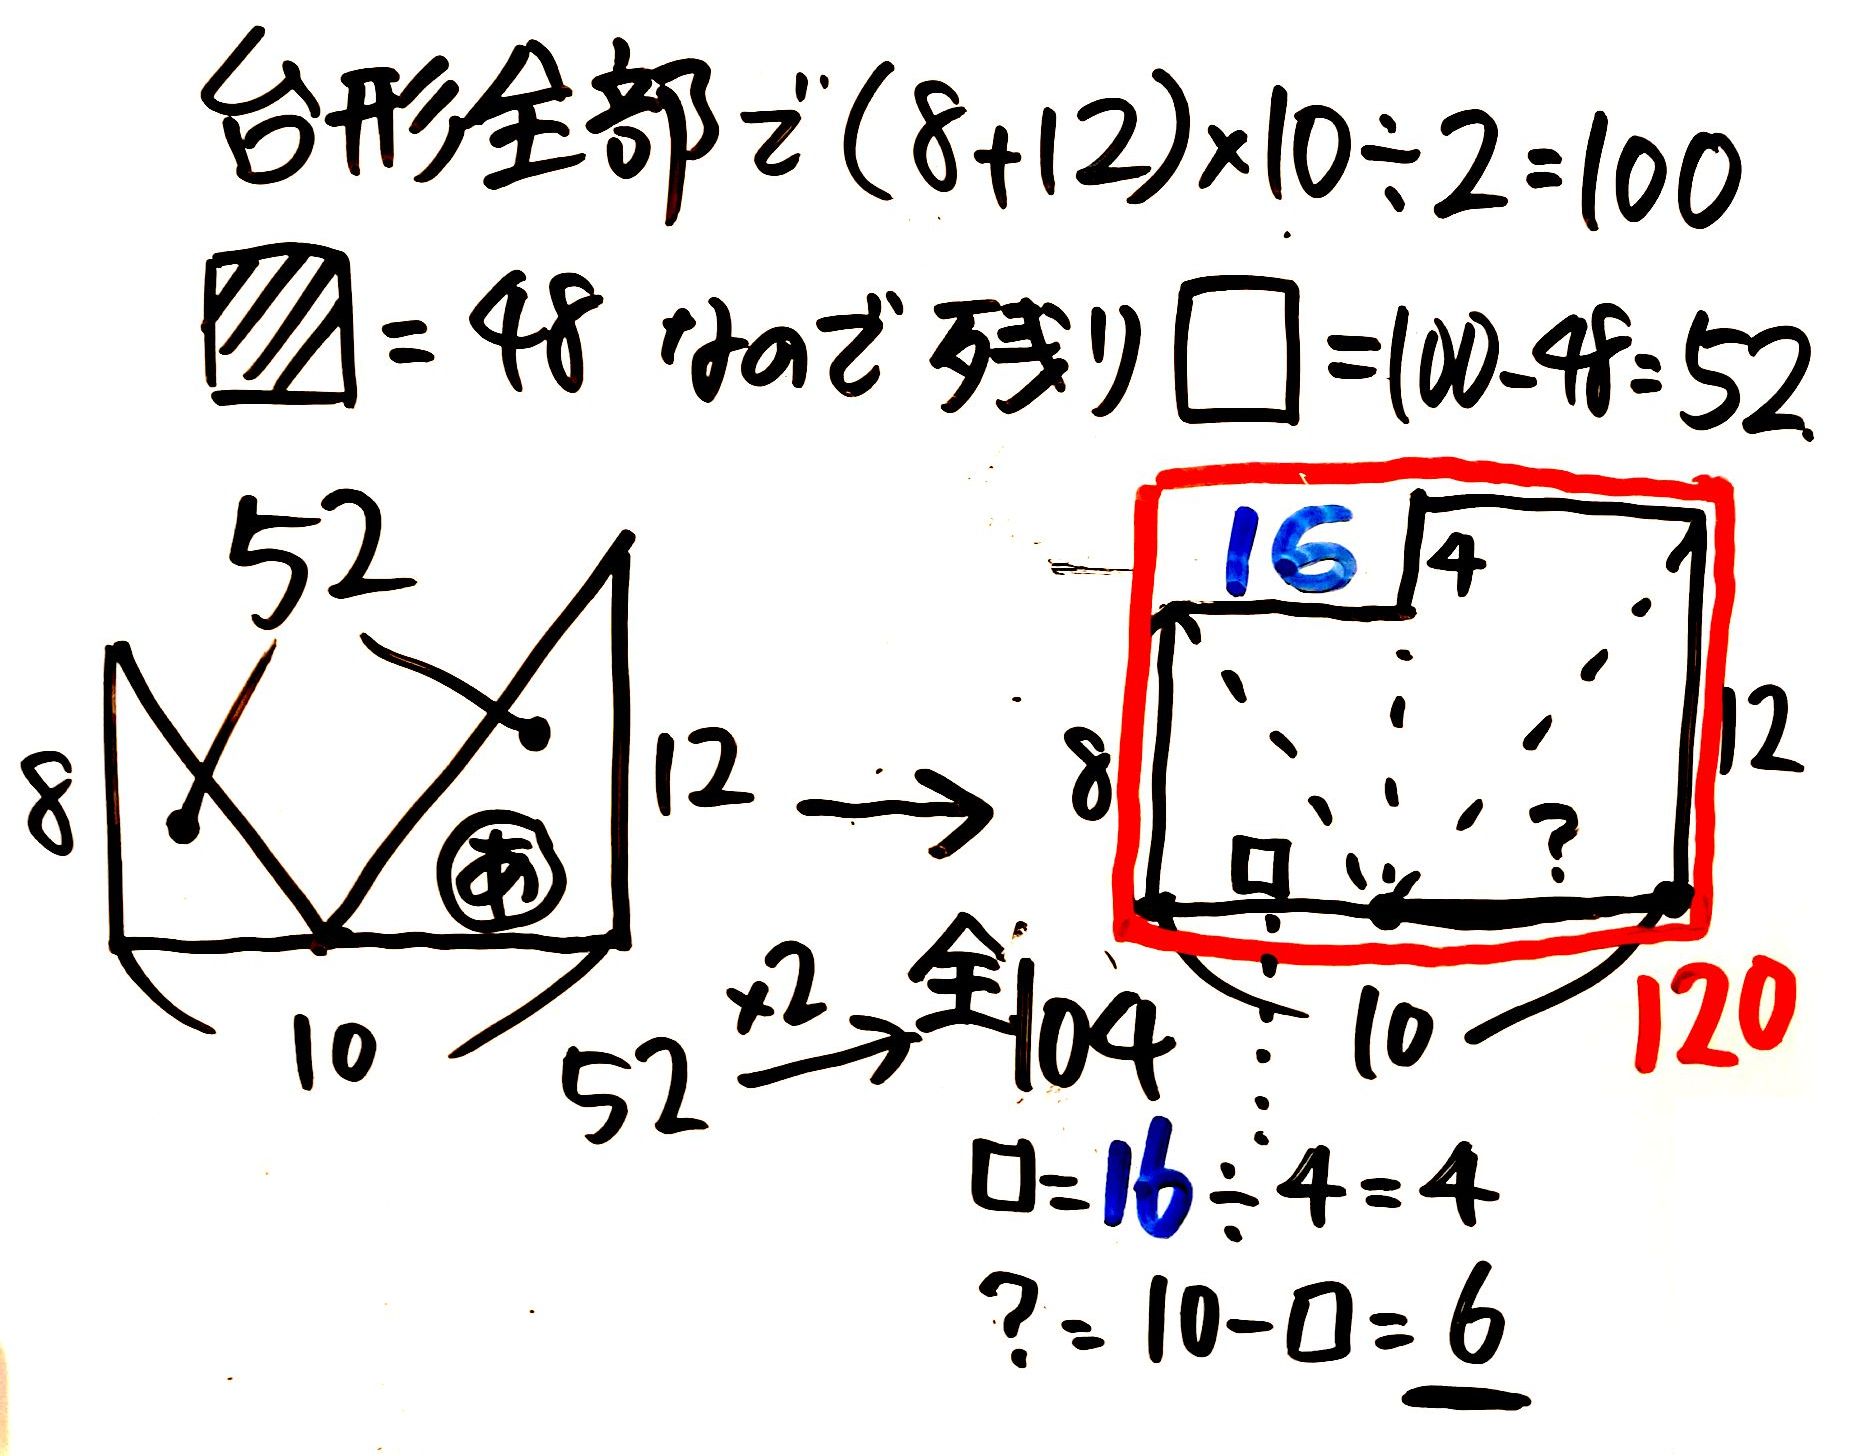 台形全部で(8+12)×10÷2=100
=48 なので 残り □=100-48=52
52
8
12
あ
10
16
4
8
12
□
?
10
120
52 ×2→ 全104
□=16÷4=4
?=10-□=6